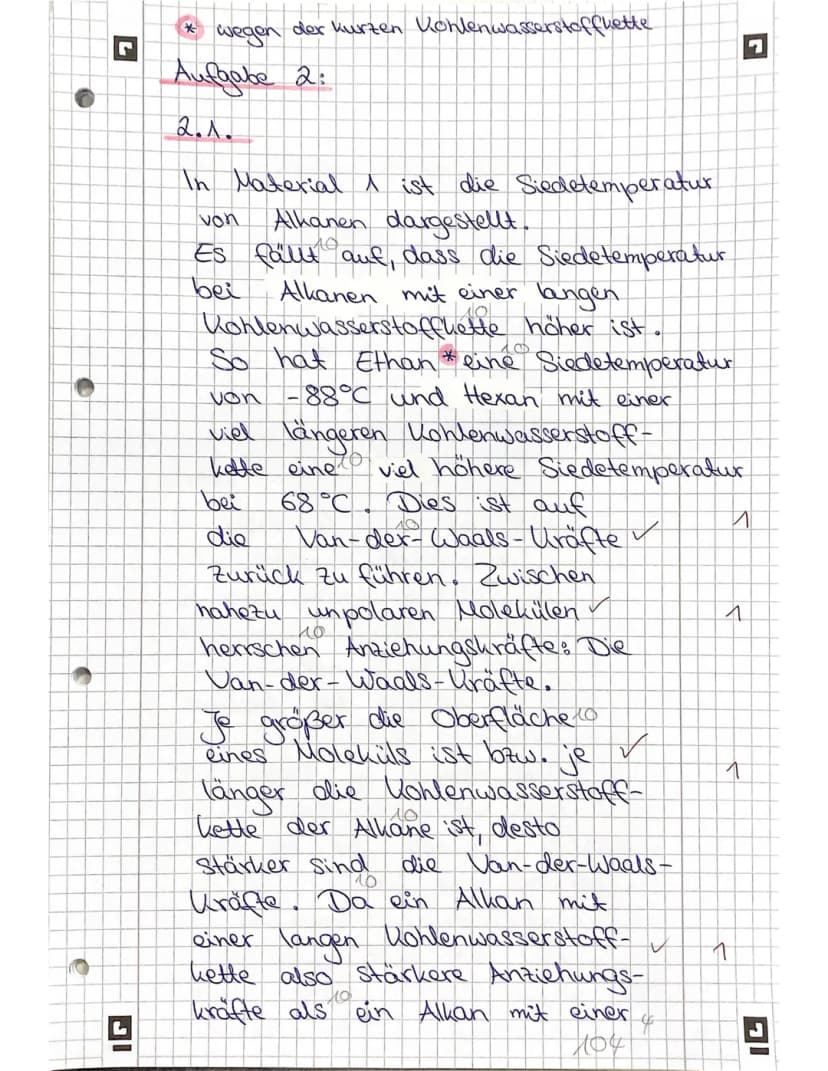 * wegen der kurzen Kohlenwasserstoffkette
Aufgabe 2:
2.1.
In Material 1 ist die Siedetemperatur
von Alkanen dargestellt.
Es fällt 10 auf, dass die Siedetemperatur
bei Alkanen mit einer langen
Kohlenwasserstoffkette 10 höher ist.
So hat Ethan * eine 10 Siedetemperatur
von -88°C und Hexan mit einer
viel längeren Kohlenwasserstoff-
kette eine 10 viel höhere Siedetemperatur
bei 68°C. Dies ist auf 1
die Van-der-10 Waals-Kräfte ✓
zurück zu führen. Zwischen
nahezu unpolaren Molekülen ✓ 1
herrschen 10 Anziehungskräfte: Die
Van-der-Waals-Kräfte.
Je größer die Oberfläche 10
eines Moleküls ist bzw. je ✓ 1
länger die Kohlenwasserstoff-
kette der Alkane 10 ist, desto
stärker sind die Van-der-Waals-
Kräfte. 10 Da ein Alkan mit
einer langen Kohlenwasserstoff- ✓ 1
kette also stärkere Anziehungs-
kräfte als 10 ein Alkan mit einer 4
104